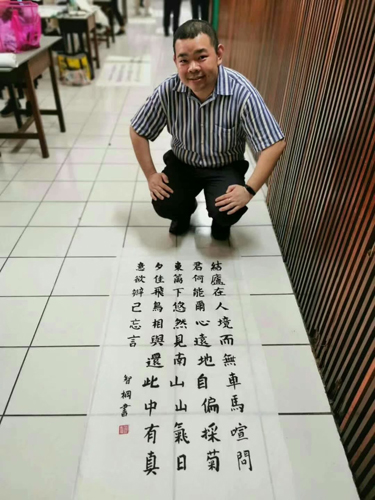 結廬在人境而無車馬喧問
君何能爾心遠地自偏採菊
東籬下悠然見南山山氣日
夕佳飛鳥相與還此中有真
意欲辨已忘言
智書